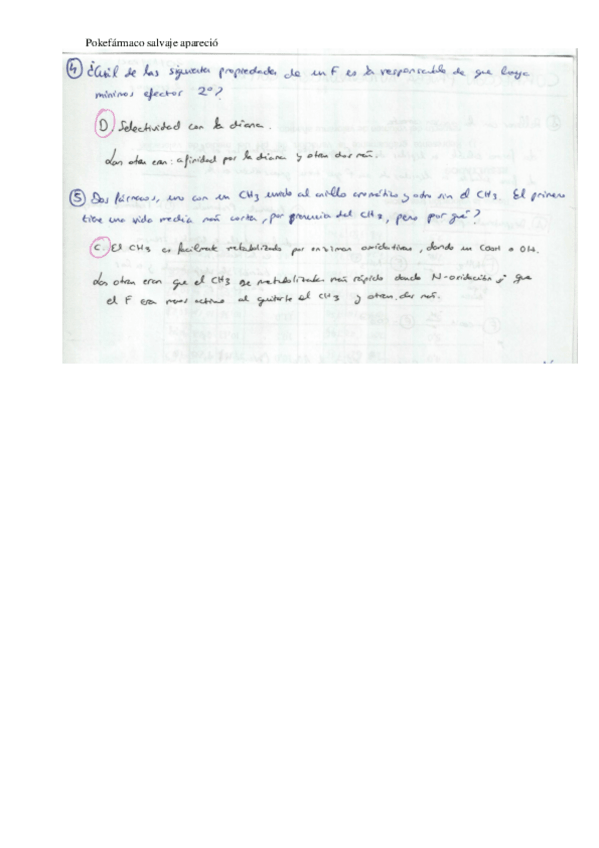 Pokefármaco salvaje apareció
④ ¿Cuál de las siguientes propiedades de un F es la responsable de que haya
mínimos efectos 2º?
D. Selectividad con la diana.
Las otras eran: afinidad por la diana y otras dos más.
⑤ Dos fármacos, uno con un CH3 unido al anillo aromático y otro sin el CH3. El primero
tiene una vida media más corta, por presencia del CH3, pero por qué?
C. El CH3 es facilmente metabolizado por enzimas oxidativas, dando un COOH o OH.
Las otras eran que el CH3 se metabolizaba más rápido dando N-oxidación, que
el F era menos activo al quitarle el CH3 y otras dos más.